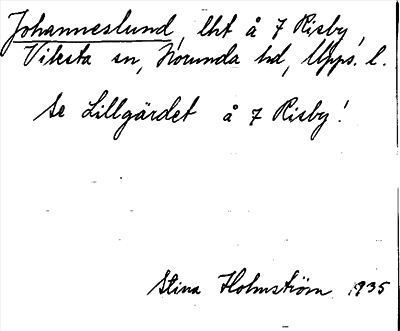 Johanneslund, lht å 7 Risby,
Viksta sn, Norunda hd, Upps. l.
Se Lillgärdet å 7 Risby!
Stina Holmström 1935